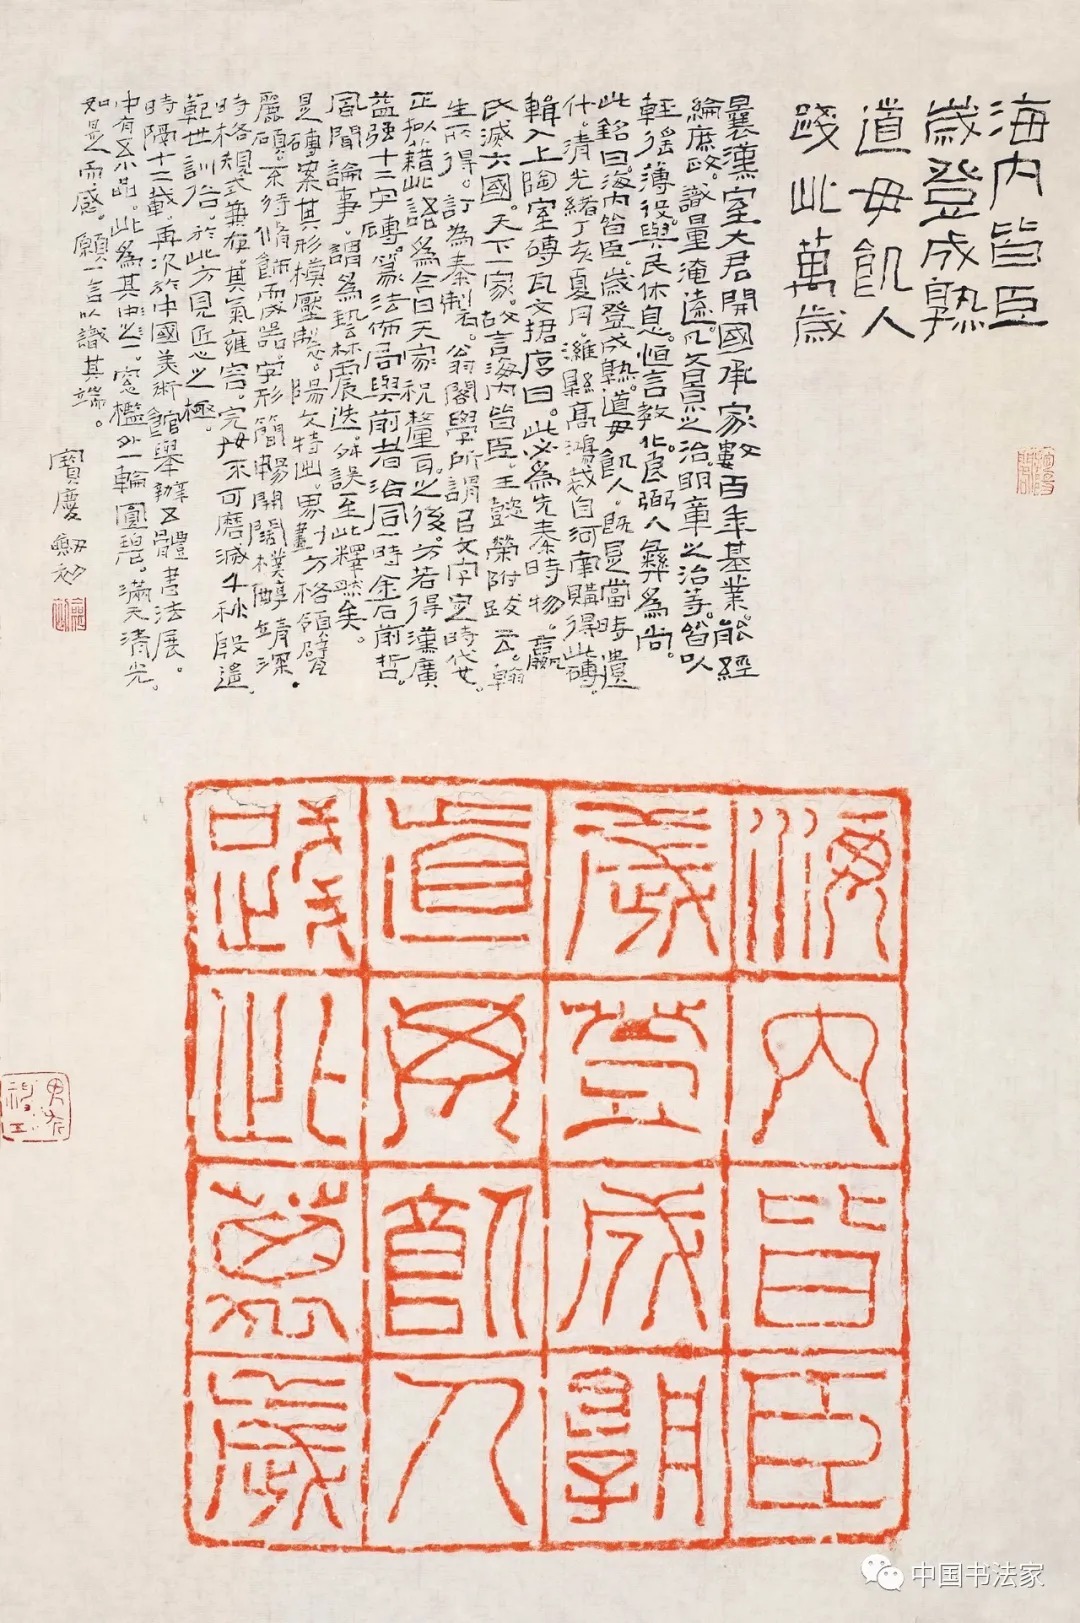 海内皆臣
歲登成熟
道毋飢人
踐此萬歲
曩漢室大君開國承家數百年基業能經
綸庶政。識量淹遠。凡文景之治。明章之治等。皆以
輕徭薄役。與民休息。恒言教化。良弼人彝為尚。
此銘曰。海内皆臣。歲登成熟。道毋飢人。既是當時遺
什。清光緒丁亥夏月。濰縣高鴻裁自河南購得此磚。
輯入上陶室磚瓦文捃。序曰。此必為先秦時物。嬴
氏滅六國。天下一家。故言海内皆臣。王懿榮附跋云。翰
生所得。訂為秦制。翁閣學所謂以文字定時代也。
正擬藉此語為今日天家祝釐耳。之後。方若得漢廣
益强十二字磚。篆法佈局與前者洽同一時。金石前哲。
風聞論事。謂為藝林震迭。舛誤至此釋然矣。
是磚案其形模壓製。陽文特出。界畫方格
麗碩。不待脩飾而成器。字形簡暢開闊樸醇靖深
時各規式兼存。其氣雍容。完好不可磨滅。千秋段遥。
範世訓俗。於此方見匠心之極。
時隔十二載。再次於中國美術館舉辦五體書法展。
中有系品。此為其中之一。窓檻外一輪圓碧。滿天清光。
如是而感。願一言以識其端。
寶慶
海内皆臣
歲登成孰
道毋飢人
踐此萬歲
中国书法家